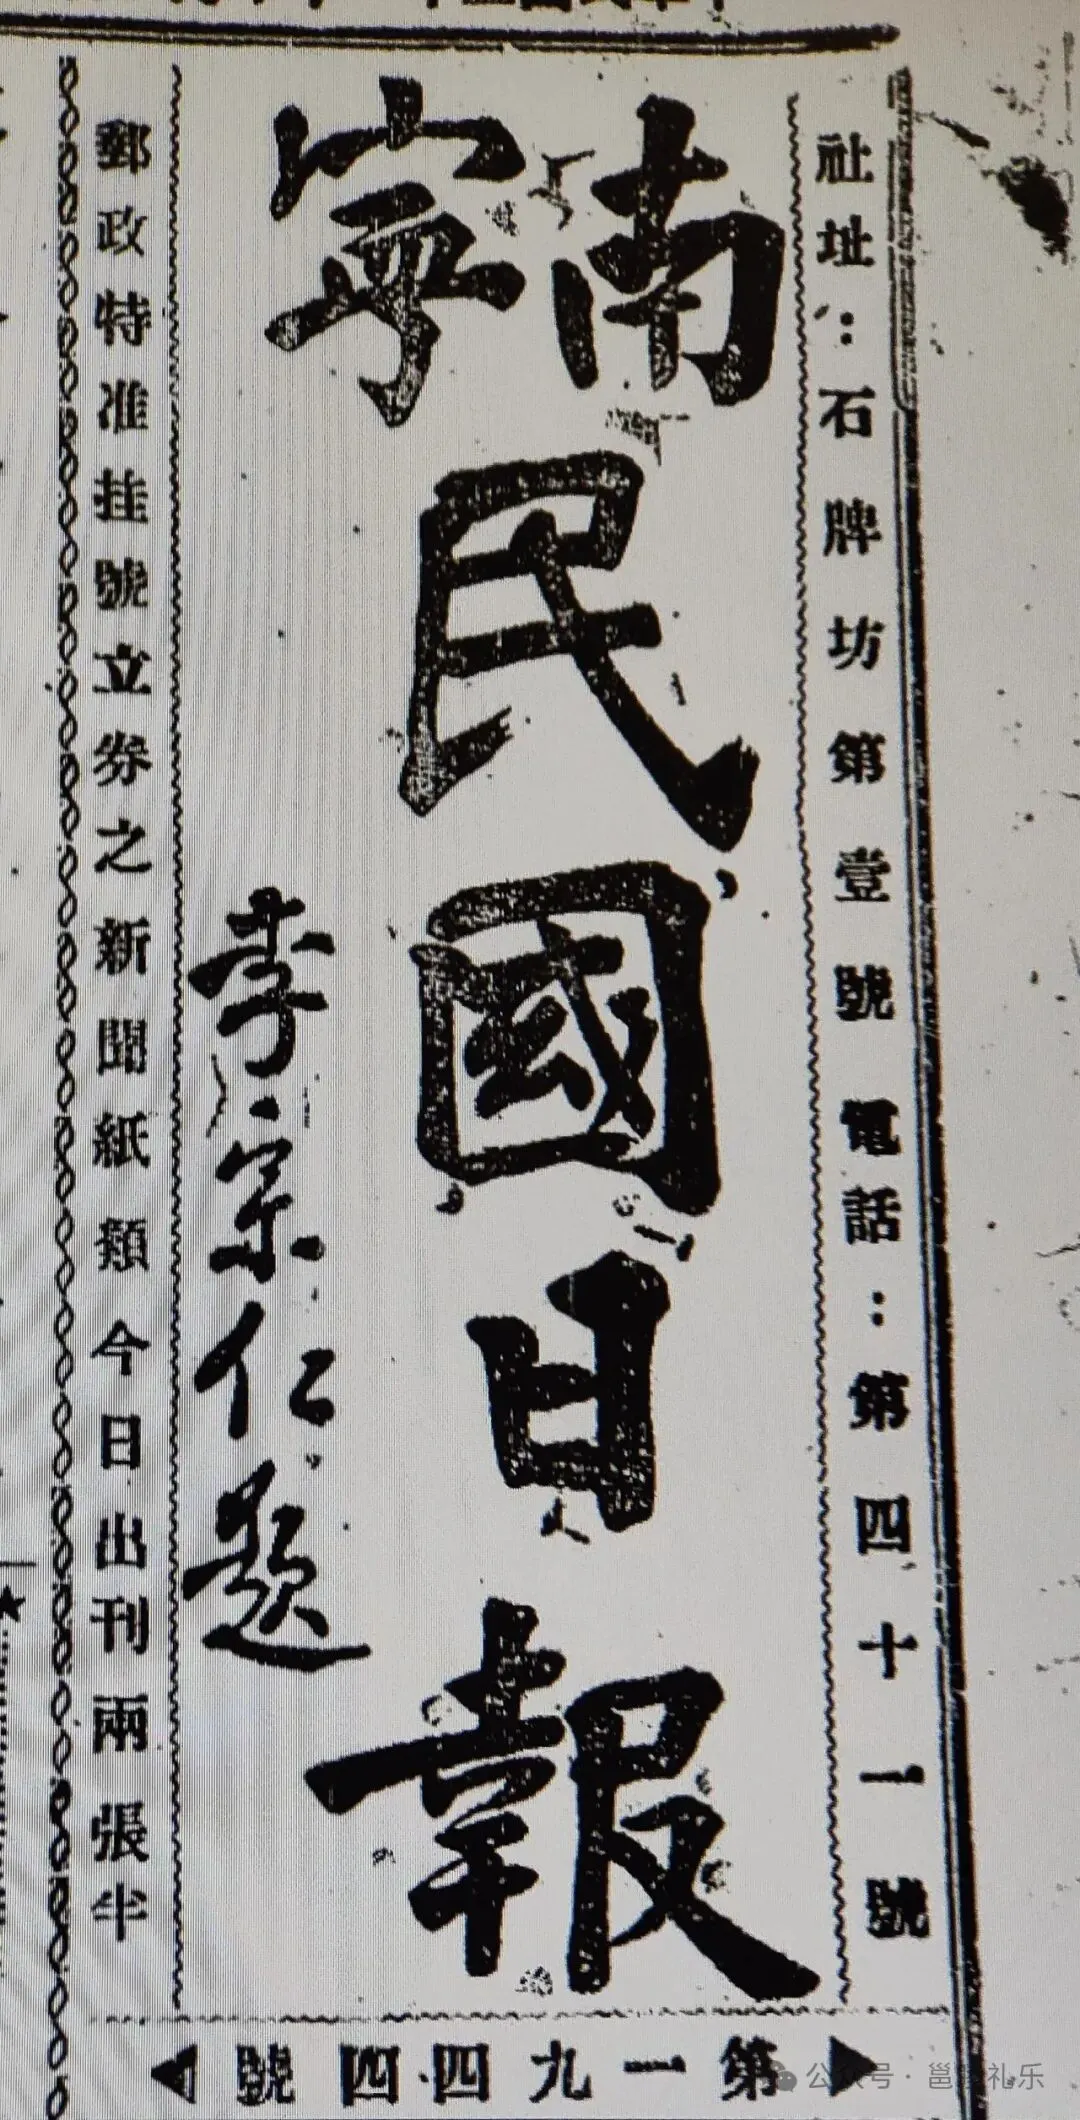 社址：石牌坊第壹號 電話：第四十一號
南寧
民國日報
李宗仁题
郵政特准挂號立券之新聞紙類今日出刊兩張半
第一九四四號
公众号 · 邕
礼乐